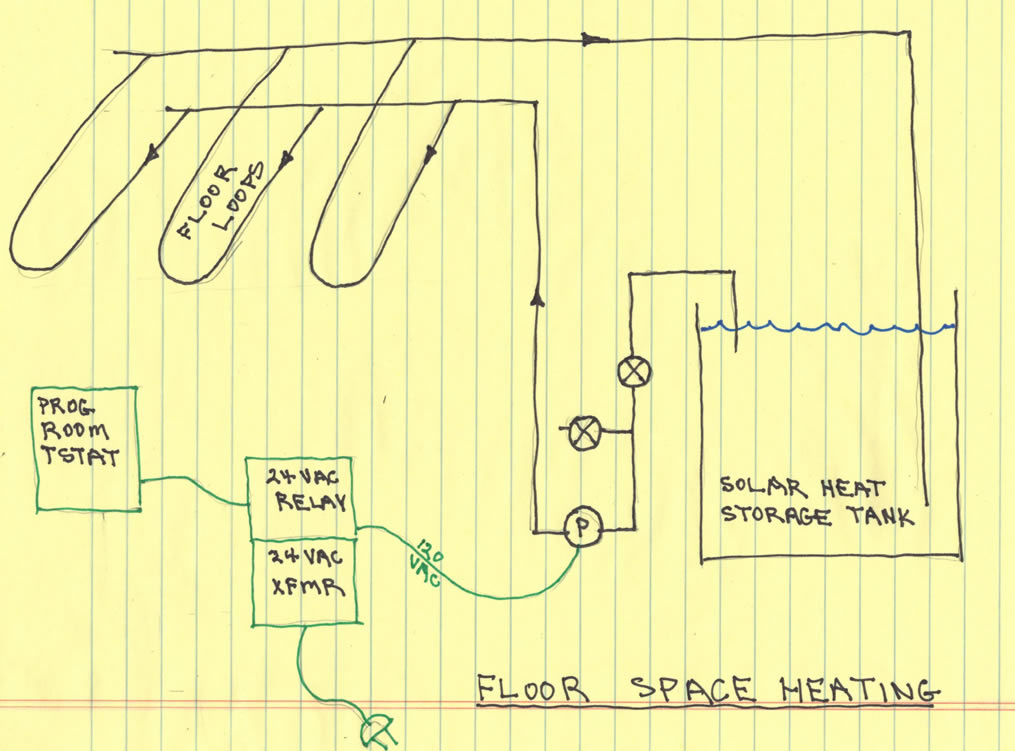 FLOOR
LOOPS
PROG
ROOM
TSTAT
24 VAC
RELAY
24 VAC
XFMR
120
VAC
P
SOLAR HEAT
STORAGE TANK
FLOOR SPACE HEATING